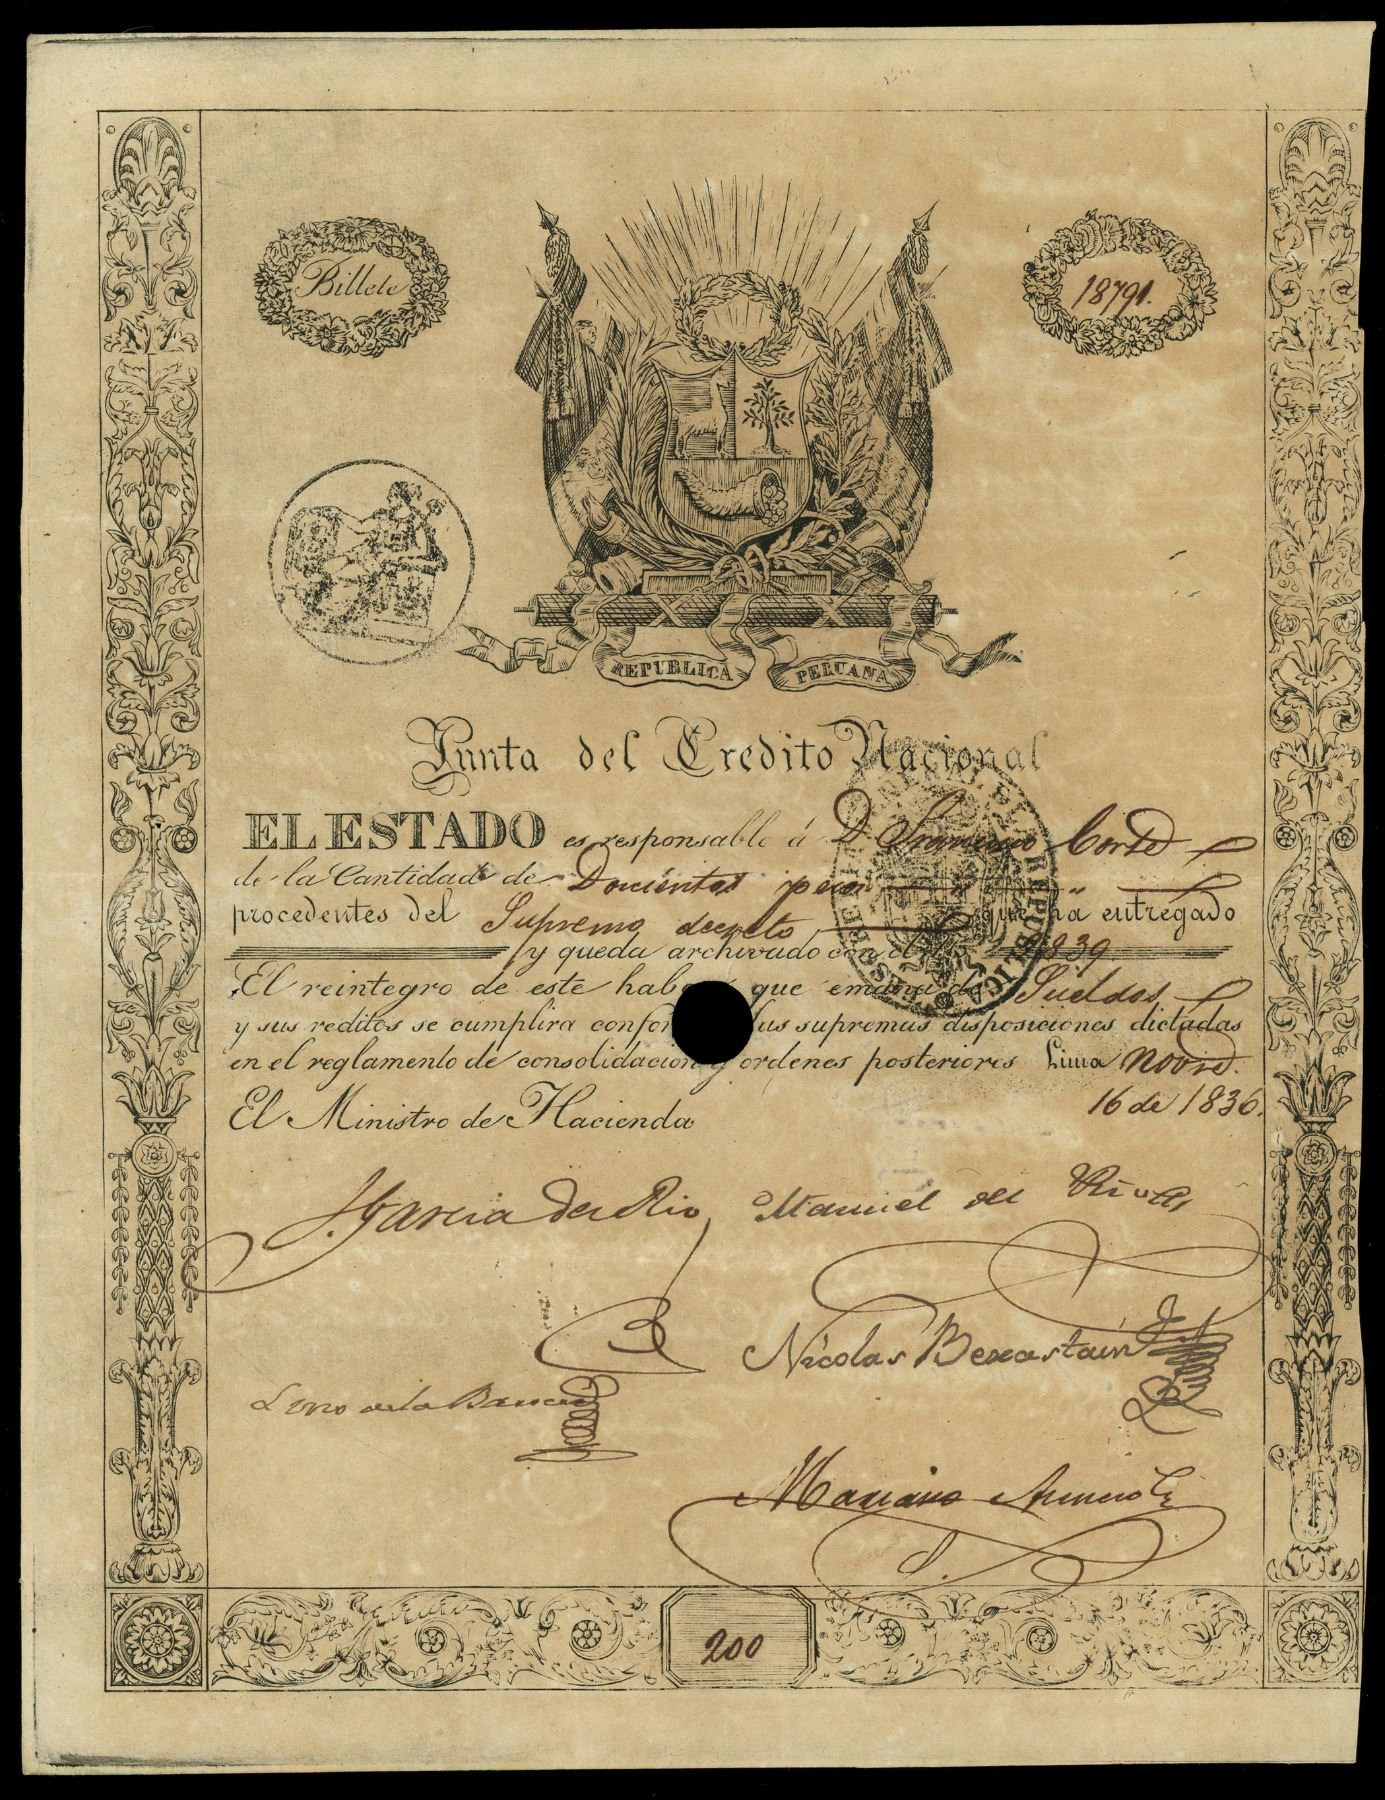 Billete
18791.
REPUBLICA PERUANA
Junta del Credito Nacional
EL ESTADO es responsable á D. Francisco
de la Cantidad de Docientos pesos
procedentes del Supremo decreto que ha entregado
y queda archivado con el
El reintegro de este que emana de Sueldos
y sus reditos se cumplira las supremas disposiciones dictadas
en el reglamento de consolidacion y ordenes posteriores Lima Novre.
16 de 1836.
El Ministro de Hacienda
J. Garcia del Rio
Manuel del
Nicolas
Mariano
200